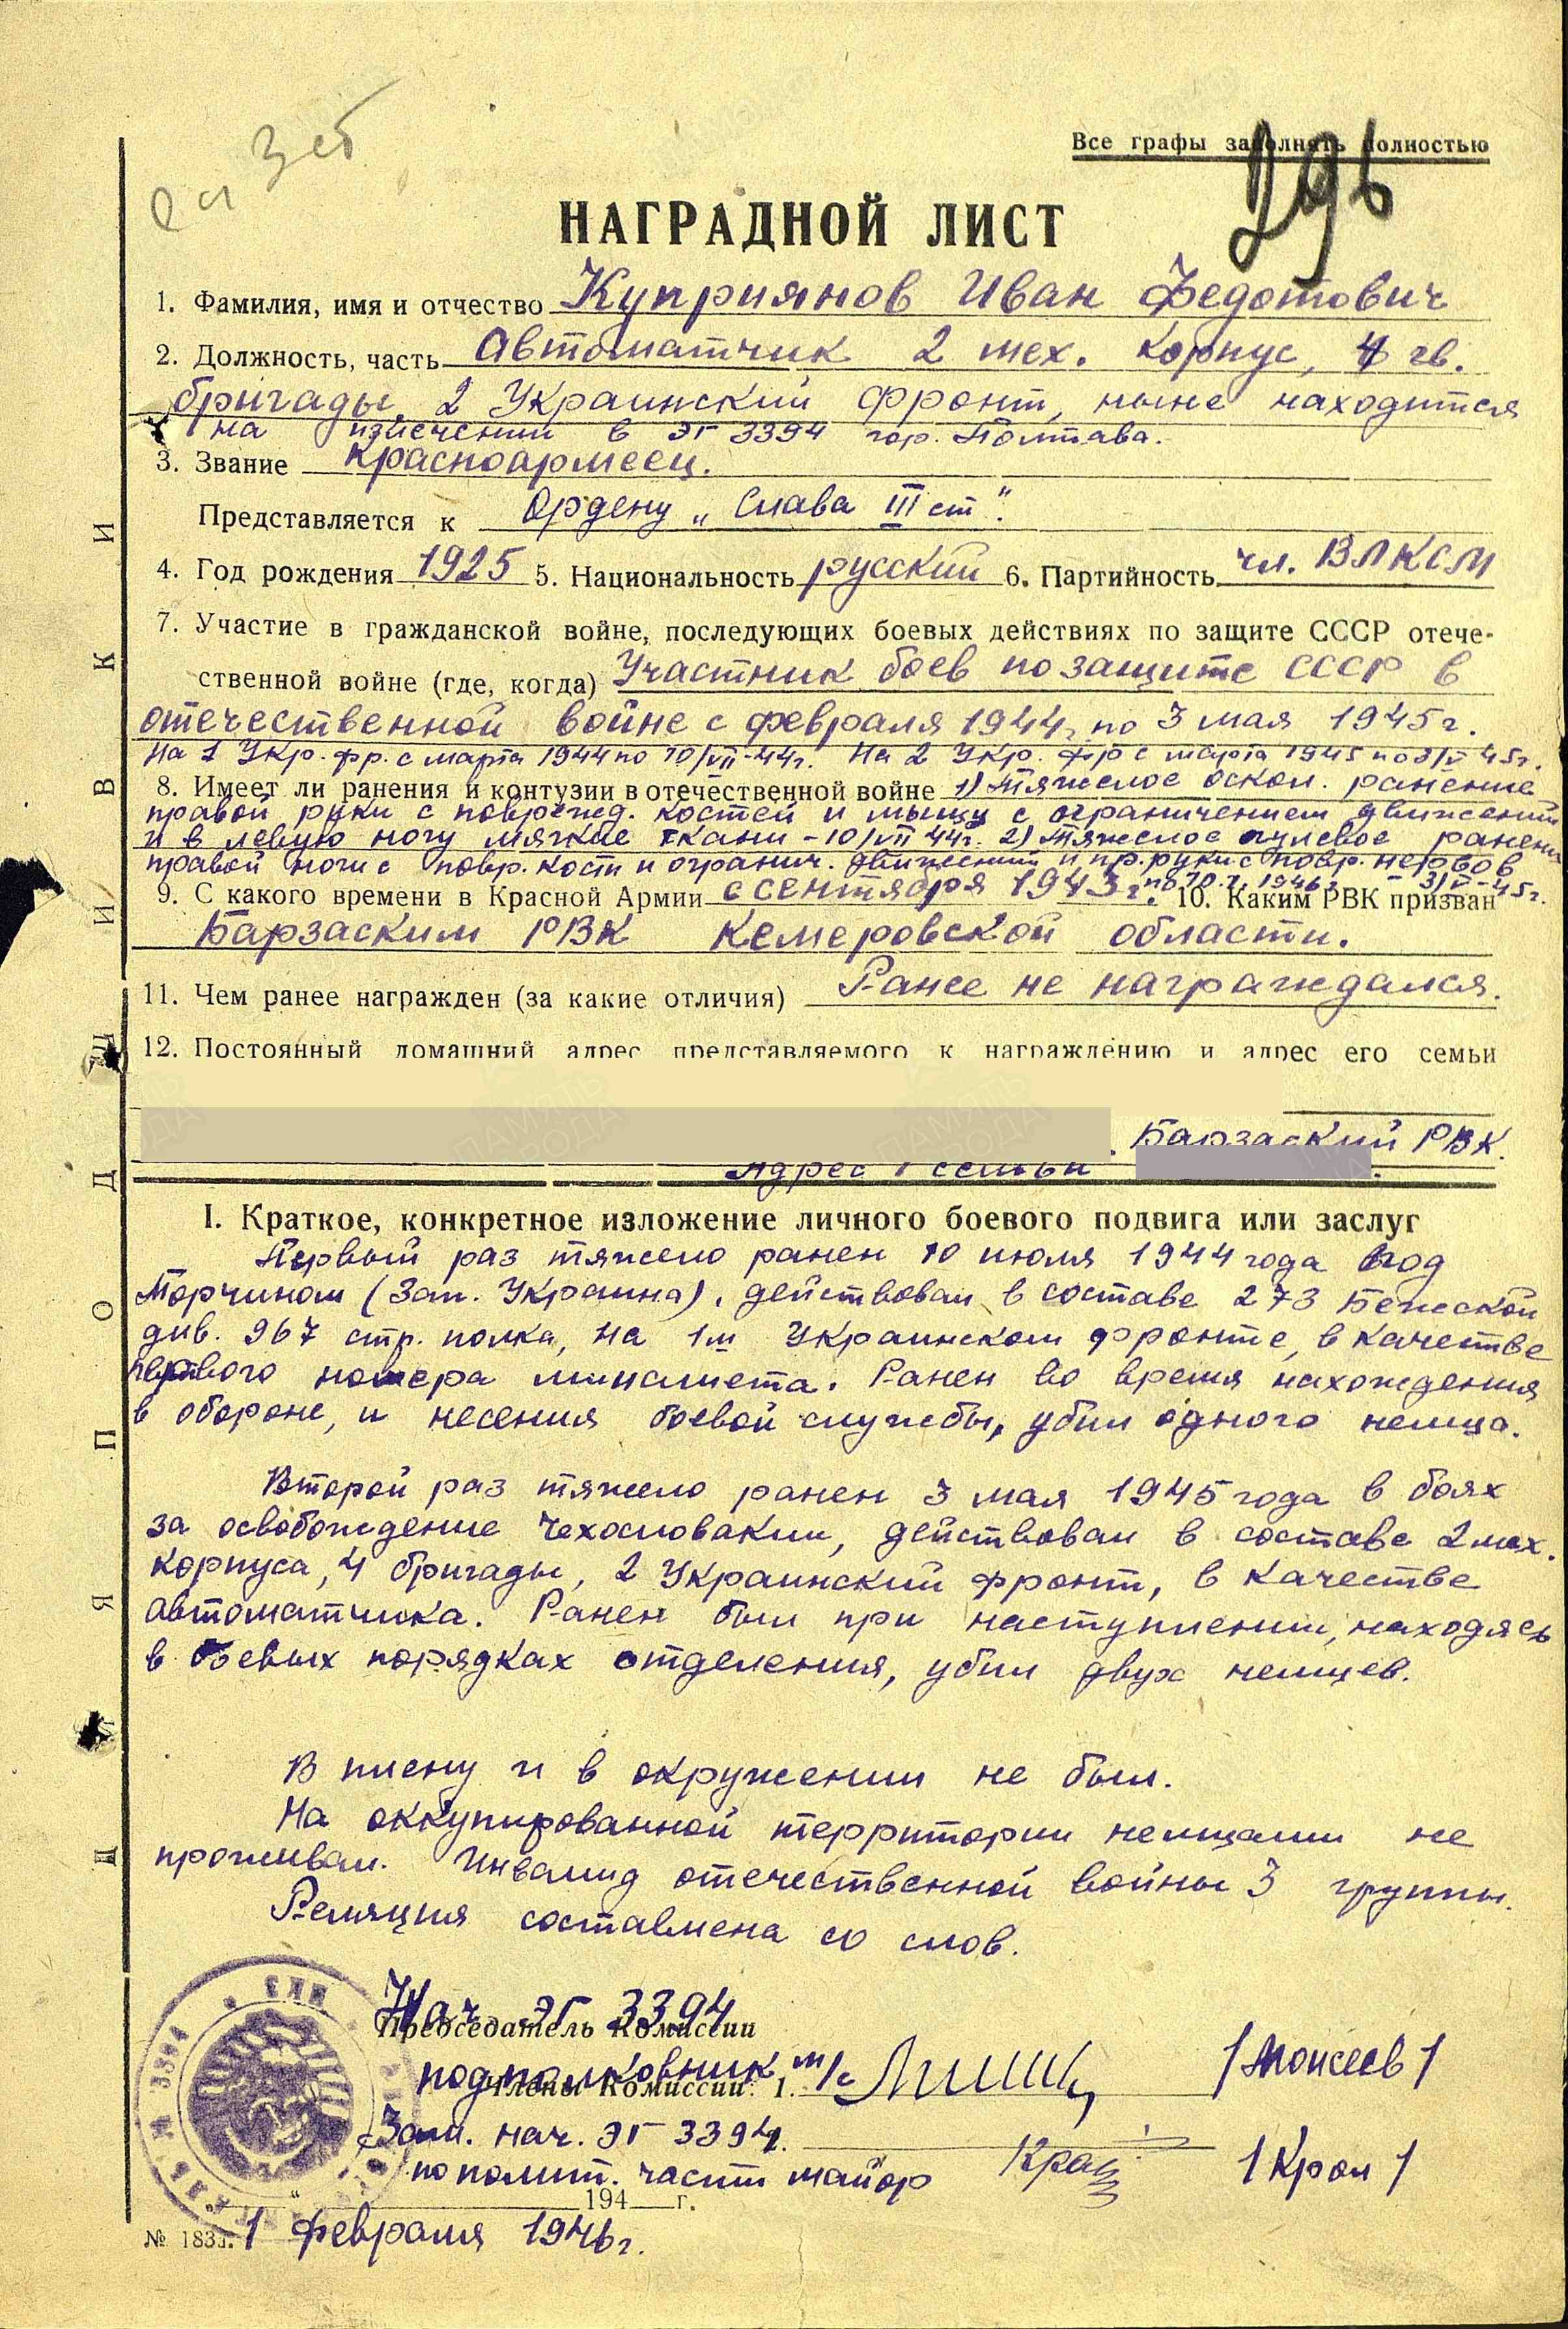 Все графы заполнять полностью
296
НАГРАДНОЙ ЛИСТ
1. Фамилия, имя и отчество Куприянов Иван Федотович
2. Должность, часть Автоматчик 2 мех. корпус, 4 гв.
бригады, 2 Украинский фронт, ныне находится
на излечении в ЭГ 3394 гор. Полтава.
3. Звание Красноармеец.
Представляется к Ордену „Слава III ст".
4. Год рождения 1925 5. Национальность русский 6. Партийность чл. ВЛКСМ
7. Участие в гражданской войне, последующих боевых действиях по защите СССР отече-
ственной войне (где, когда) Участник боев по защите СССР в
отечественной войне с февраля 1944 г. по 3 мая 1945 г.
На 1 Укр. фр. с марта 1944 по 10/VII-44г. На 2 Укр. фр с марта 1945 по 3/V 45г.
8. Имеет ли ранения и контузии в отечественной войне 1) Тяжелое оскол. ранение
правой руки с поврежд. костей и мышц с ограничением движений
и в левую ногу мягкие ткани - 10/VII 44г. 2) Тяжелое пулевое ранение
правой ноги с повр. кости и огранич. движений и пр. руки с повр. нервов
3/V-45г.
9. С какого времени в Красной Армии с сентября 1943 г. по 10.I.1946 г. 10. Каким РВК призван
Барзаским РВК Кемеровской области.
11. Чем ранее награжден (за какие отличия) Ранее не награждался.
12. Постоянный домашний адрес представляемого к награждению и адрес его семьи
Барзаский РВК.
Адрес семьи
I. Краткое, конкретное изложение личного боевого подвига или заслуг
Первый раз тяжело ранен 10 июля 1944 года под
Торчином (Зап. Украина), действовал в составе 273 Бежской
див. 967 стр. полка, на 1м Украинском фронте, в качестве
первого номера миномета. Ранен во время нахождения
в обороне, и несения боевой службы, убил одного немца.
Второй раз тяжело ранен 3 мая 1945 года в боях
за освобождение Чехословакии, действовал в составе 2 мех.
корпуса, 4 бригады, 2 Украинский фронт, в качестве
автоматчика. Ранен был при наступлении, находясь
в боевых порядках отделения, убил двух немцев.
В плену и в окружении не был.
На оккупированной территории немцами не
проживал. Инвалид отечественной войны 3 группы.
Реляция составлена со слов.
Нач. ЭГ 3394
Председатель Комиссии
подполковник м/с /Моисеев/
Члены Комиссии: 1.
Зам. нач. ЭГ 3394
по полит. части майор Крол /Крол/
194 г.
1 февраля 1946 г.
№ 183
ДЛЯ ПОДШИВКИ